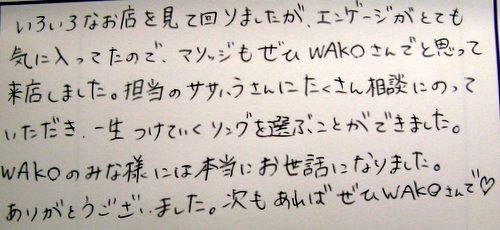 いろいろなお店を見て回りましたが、エンゲージがとても
気に入ってたので、マリッジもぜひWAKOさんでと思って
来店しました。担当のササハラさんにたくさん相談にのって
いただき、一生つけていくリングを選ぶことができました。
WAKOのみな様には本当にお世話になりました。
ありがとうございました。次もあればぜひWAKOさんで♡